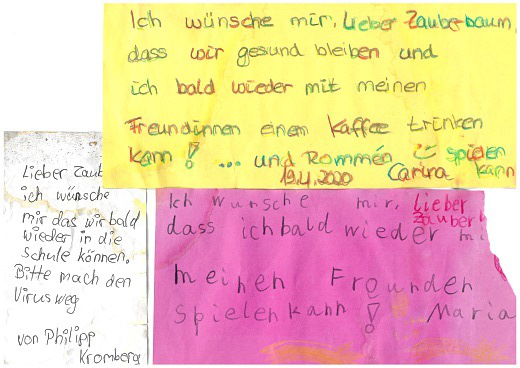 Ich wünsche mir, lieber Zauberbaum,
dass wir gesund bleiben und
ich bald wieder mit meinen
Freundinnen einem Kaffee trinken
kann! ... und Rommén spielen
19.4.2020 Carina kann
Lieber Zaub
ich wünsche
mir das wir bald
wieder in die
Schule können.
Bitte mach den
Virus weg
von Philipp
Kromberg
Ich wünsche mir, lieber
Zauberb
dass ich bald wieder mi
meinen Freunden
Spielen kann! Maria